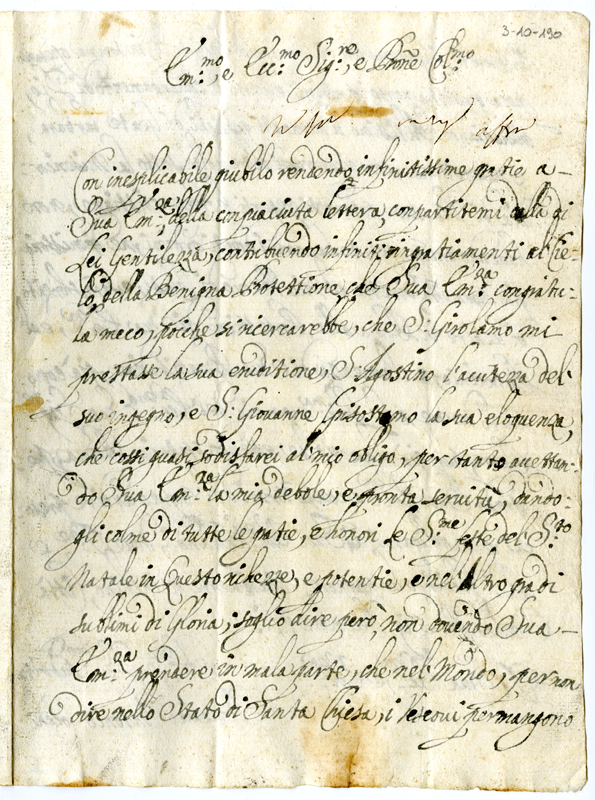 3-10-190
Em.mo, e Ecc.mo Sig.re, e Pñne Col.mo
Con inesplicabile giubilo rendendo infinitissime gratie a
Sua Em.za, della cmpiaciuta lettera, conpartitemi dalla di
Lei Gentilezza, contibuendo infiniti ringratiamenti al Cie-
lo, della Benigna Protettione, che Sua Em.za congratu-
la meco, poiche si ricercarebbe, che S. Girolamo mi
prestasse la sua eruditione, S. Agostino l'acutezza del
suo ingegno, e S. Giovanne Grisostomo la sua eloquenza,
che cossi quasi sodisfarei al mio obligo, per tanto accettan-
do Sua Em.za la mia debole, e pronta servitù, dando-
gli colme di tutte le gratie, e honori le S.me feste del S.to
Natale in Questo richezze, e potentie, e nel altro gradi
sublimi di Gloria; soglio dire però, non dovendo Sua
Em.za prendere in mala parte, che nel Mondo, per non
dire nello Stato di Santa Chiesa, i Vescovi permangono